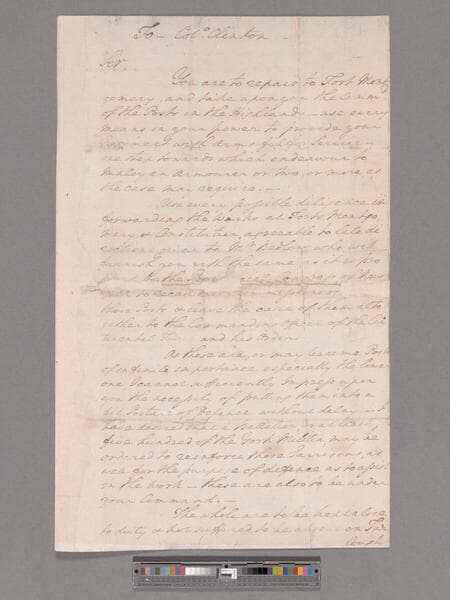 To - Colo. Clinton -
Sir
You are to repair to Fort Montg
omery, and take upon you the Comm
of the Posts in the Highlands - use every
means in your power to provide your
Regiment with Arms fit for Service -
one step towards which endeavour to
employ an Armourer or two, or more as
the case may require. -
Use every possible diligence in
forwarding the Works at Forts Montgo
mery & Constitution, agreeable to late di
rections given to Mr. Bedlow who will
furnish you with the same
those Posts receive the care of them
either to the Commanding Officer of the
and his Order
As these are, or may become Posts
of infinite importance especially the lower
one I cannot sufficiently impress upon
you the necessity of putting them into a
fit Posture of Defence without delay. - I
have desired that a Battalion, or at least
five hundred of the York Militia may be
ordered to reinforce these Garrisons, as
well for the purpose of defence as to assist
in the work - these are also to be under
your Command. -
The whole are to be kept close
to duty & not suffered to be absent on Fur
lough